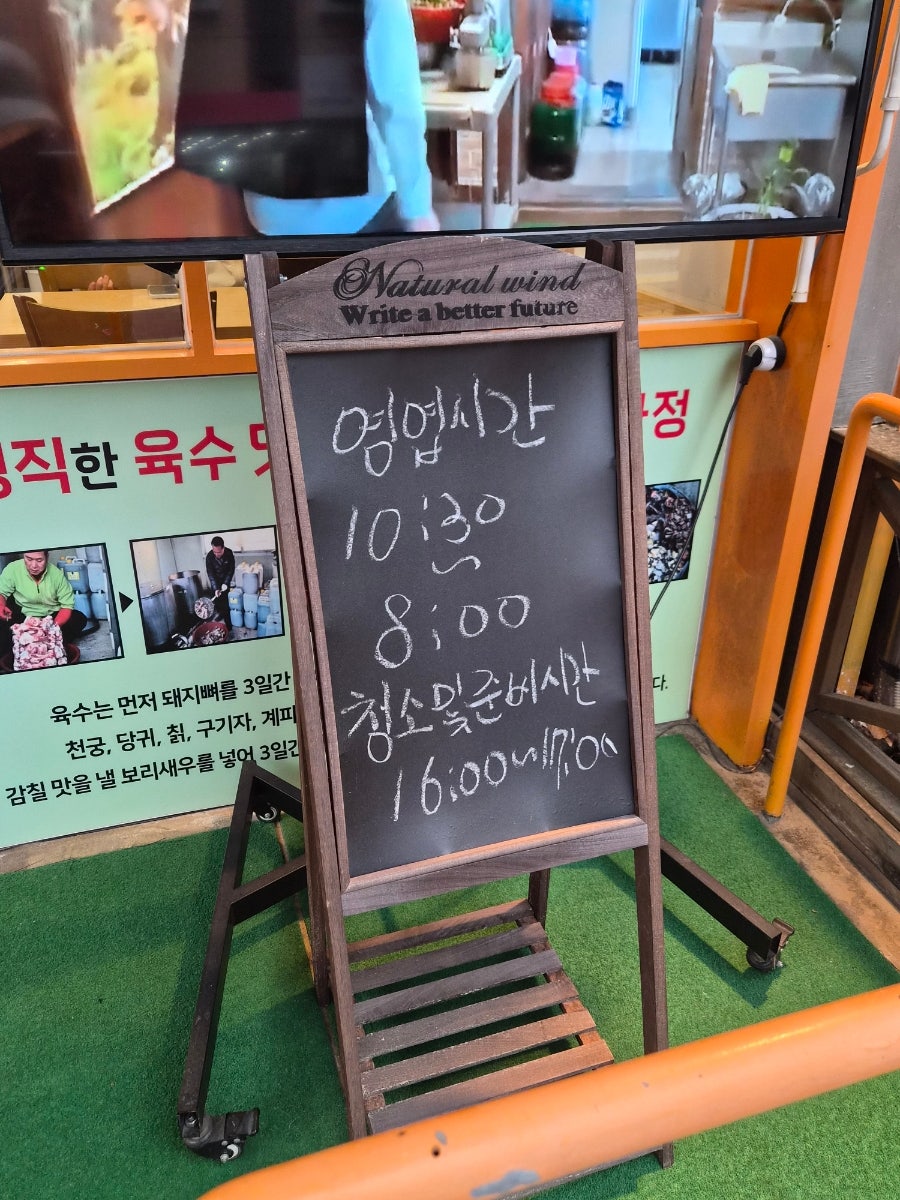 Natural wind
Write a better future
영업시간
10:30
~
8:00
청소및준비시간
16:00
직한 육수
정
육수는 먼저 돼지뼈를 3일간
천궁, 당귀, 칡, 구기자, 계피
감칠 맛을 낼 보리새우를 넣어 3일간
다.